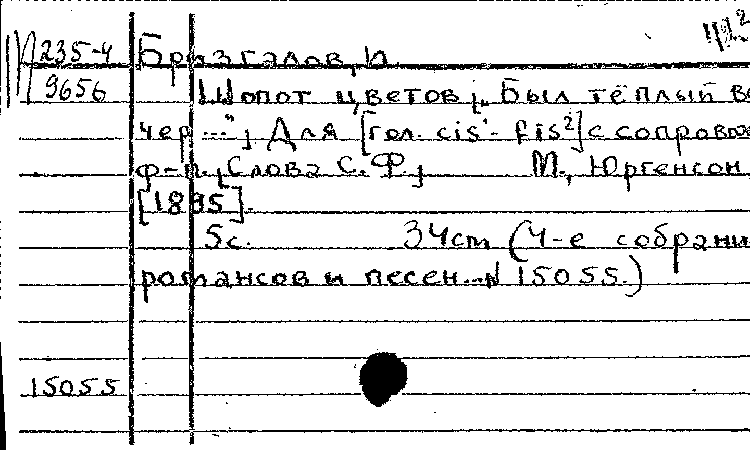 М 235-4
9656
Брызгалов, И.
Шопот цветов; „Был тёплый ве
чер..."; Для [гол. cis¹- fis²] с сопровож
ф-п. [Слова С. Ф.] М., Юргенсон,
[1895].
5с. 34cm (4-е собрани
романсов и песен...№ 15055.)
15055